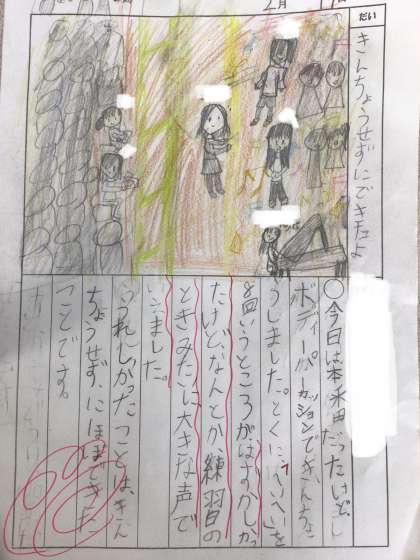 2月
だい
きんちょうせずにできたよ
○今日は本番だったけど、し
ボディーパーカッションできんちょ
うしました。とくに、「へいへい」を
言いうところがはずかしかっ
たけど、なんとか練習の
ときみたいに大きな声で
いえました。
うれしかったことは、きん
ちょうせずにほぼできた
ことです。